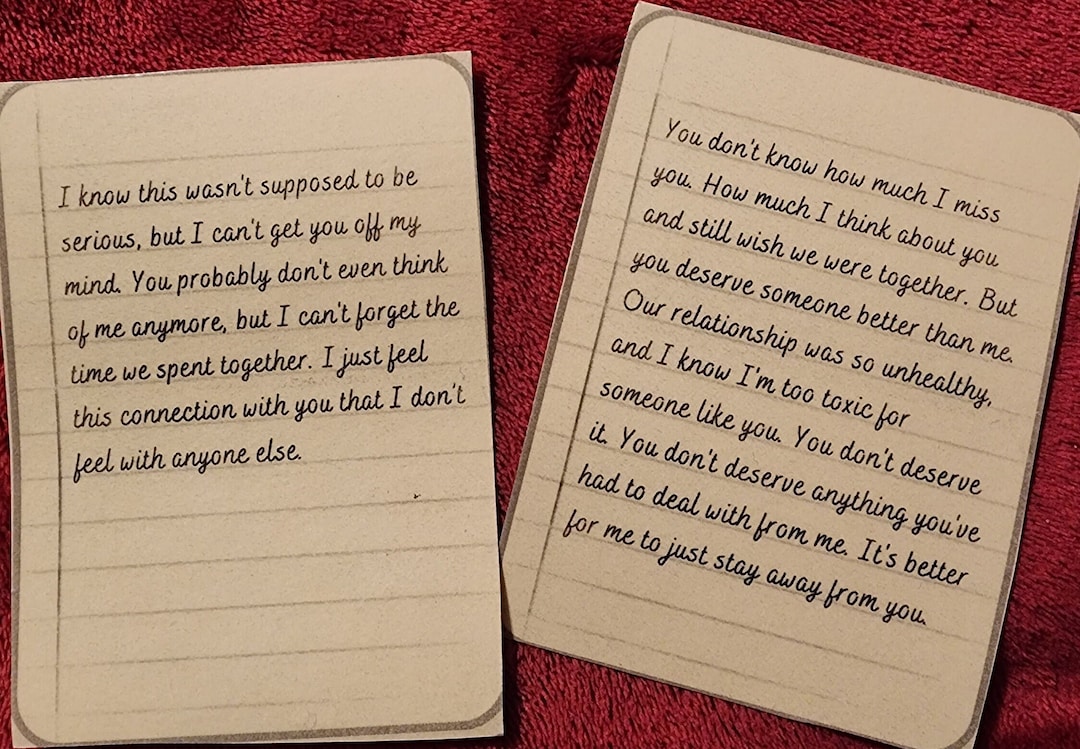 I know this wasn't supposed to be
serious, but I can't get you off my
mind. You probably don't even think
of me anymore, but I can't forget the
time we spent together. I just feel
this connection with you that I don't
feel with anyone else.
You don't know how much I miss
you. How much I think about you
and still wish we were together. But
you deserve someone better than me.
Our relationship was so unhealthy,
and I know I'm too toxic for
someone like you. You don't deserve
it. You don't deserve anything you've
had to deal with from me. It's better
for me to just stay away from you.